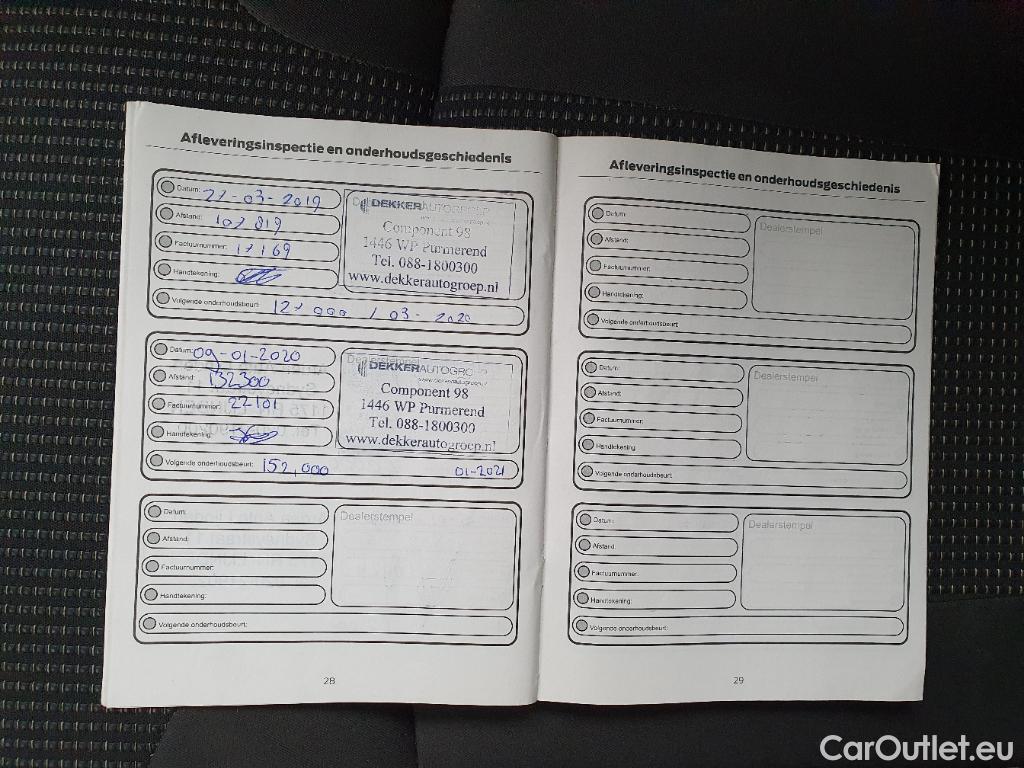 Afleveringsinspectie en onderhoudsgeschiedenis
Datum: 27-03-2019
Afstand: 107819
Factuurnummer: 17169
Handtekening:
DEKKERAUTOGROEP
Component 98
1446 WP Purmerend
Tel. 088-1800300
www.dekkerautogroep.nl
Volgende onderhoudsbeurt: 127000 / 03-2020
Datum: 09-01-2020
Afstand: 132300
Factuurnummer: 22101
Handtekening:
Dealerstempel
DEKKERAUTOGRO
Component 98
1446 WP Purmerend
Tel. 088-1800300
www.dekkerautogroep.nl
Volgende onderhoudsbeurt: 152,000 01-2021
Datum:
Afstand:
Factuurnummer:
Handtekening:
Dealerstempel
Volgende onderhoudsbeurt:
28
Afleveringsinspectie en onderhoudsgeschiedenis
Datum:
Afstand:
Factuurnummer:
Handtekening:
Dealerstempel
Volgende onderhoudsbeurt:
Datum:
Afstand:
Factuurnummer:
Handtekening:
Dealerstempel
Volgende onderhoudsbeurt:
Datum:
Afstand:
Factuurnummer:
Handtekening:
Dealerstempel
Volgende onderhoudsbeurt:
29
CarOutlet.eu